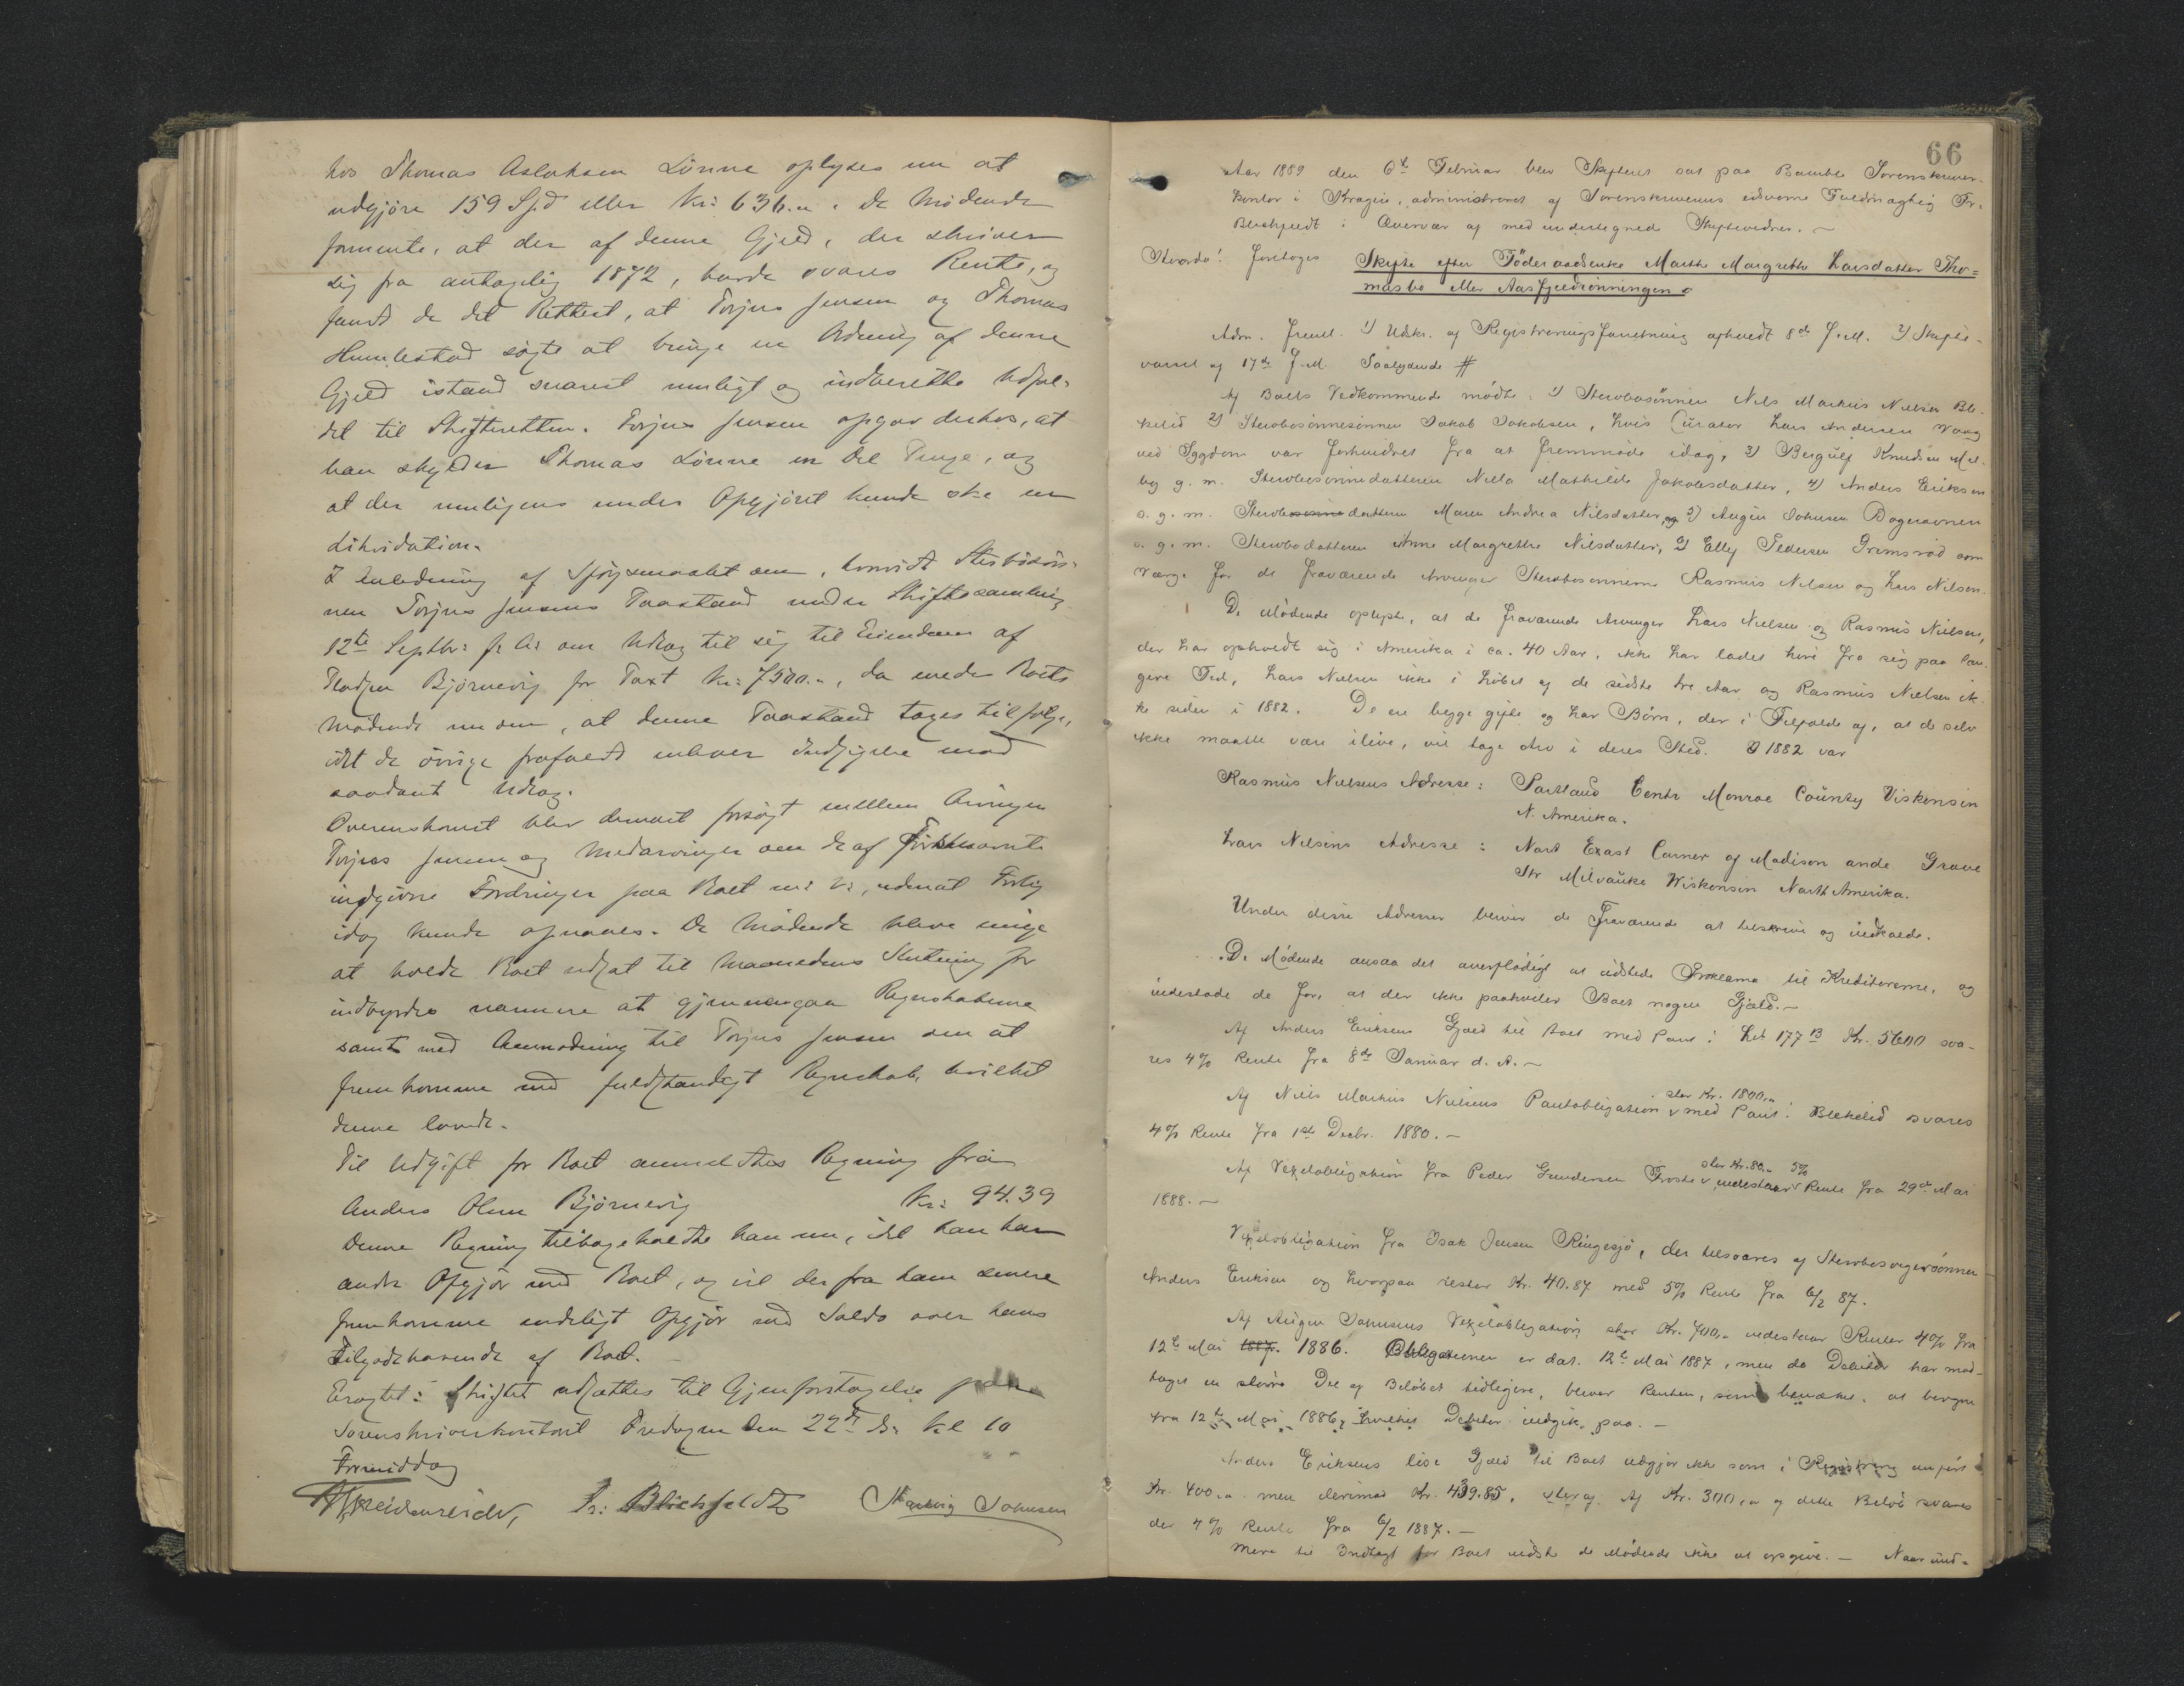 hos Thomas Aslaksen Lönne oplyses nu at
udgjøre 159 Spd eller Kr: 636.„. De Mødende
formente, at der af denne Gjeld, der skriver
sig fra antagelig 1872, burde svares Rente, og
fandt de det Rettest, at Torjus Jensen og Thomas
Humlestad søgte at bringe en Ordning af denne
Gjeld istand snarest muligt og indberette Udfal-
det til Skifteretten. Torjus Jensen opgav derhos, at
han skylder Thomas Lönne en Del Penge, og
at der muligens under Opgjöret kunde ske en
Likvidation.
I Anledning af Spörgsmaalet om, hvorvidt Sterbösön-
nen Torjus Jensens Paastand under Skiftesamling
12te Septbr: f. A: om Udlæg til sig til Eiendom af
Pladsen Björnevig for Taxt Kr: 7500.„, da enedes Boets
Mødende nu om, at denne Paastand tages tilfølge,
idet de övrige frafaldt enhver Indsigelse mod
saadant Udlæg.
Overenskomst blev dernæst forsögt mellem Arvingen
Torjus Jensen og Medarvinger om de af Förstnævnte
indgivne Fordringer paa Boet m: V:, uden at Forlig
idag kunde opnaaes. De Mödende bleve enige
at holde Boet udsat til Maanedens Slutning for
indbyrdes nærmere at gjennemgaa Regnskaberne
samt med Anmodning til Torjus Jensen om at
fremkomme med fuldstændigt Regnskab, hvilket
denne lovede.
Til Udgift for Boet anmeldtes Regning fra
Anders Olsen Björnevig Kr: 94.39
Denne Regning tilbageholdte han nu, idet han har
andre Opgjör med Boet, og vil der fra ham senere
fremkomme endeligt Opgjör med Saldo over hans
Tilgodehavende af Boet.
Eragtet: Skiftet udsættes til Gjenforetagelse paa
Sorenskriverkontoret Fredagen den 22de ds. Kl 10
Formiddag
Fr: Blichfeldt Hartvig Johnsen
66
Aar 1889 den 6te Februar blev Skifteret sat paa Bamble Sorenskriver-
kontor i Kragerö, administreret af Sorenskriverens edsvorne Fuldmægtig Fr.
Blichfeldt i Overvær af medundertegnede Skiftevidner. —
Hvorda! foretoges Skifte efter Föderaadsenke Marthe Margrethe Larsdatter Tho=
masbo eller Aasfjeldrönningen.
Adm. freml. 1) Udskr. af Registreringsforretning afholdt 8de f. M. 2) Skifte-
varsel af 17de f. M. Saalydende #
Af Boets Vedkommende mödte: 1) Sterbosönnen Nils Markus Nielsen Ble-
kelid 2) Sterbosönnesönnen Jakob Jakobsen, hvis Curator Lars Andersen Vaag
ved Sygdom var forhindret fra at fremmöde idag, 3) Bergulf Knudsen Mel-
by g. m. Sterbosönnedatteren Nilla Mathilde Jakobsdatter, 4) Anders Eriksen
s. g. m. Sterbosönnedatteren Maren Andrea Nilsdatter, og 5) Augen Johnsen
s. g. m. Sterbodatteren Anne Margrethe Nilsdatter, Elly Pedersen Grimsrød som
Værge for de fraværende Arvinger Sterbosønnerne Rasmus Nilsen og Lars Nilsen.
De Mödende oplyste, at de fraværende Arvinger Lars Nielsen og Rasmus Nielsen,
der har opholdt sig i Amerika i ca. 40 Aar, ikke har ladet höre fra sig paa læn-
gere Tid, Lars Nielsen ikke i Löbet af de sidste tre Aar og Rasmus Nielsen ik-
ke siden i 1882. De ere begge gifte og har Börn, der i Tilfælde af, at de selv
ikke maatte være ilive, vil tage Arv i deres Sted. I 1882 var
Rasmus Nielsens Adresse: Portland Centr Monroe County Viskonsin
N. Amerika.
Lars Nilsens Adresse: Nord East Corner of Madison ande Grove
Str Milvauke Wiskonsin North Amerika.
Under disse Adresser bliver de Fraværende at tilskrive og indkalde.
De Mödende ansaa det overflödigt at udstede Proklama til Kreditorerne, og
indestode de for, at der ikke paahviler Boet nogen Gjæld. —
Af Anders Eriksens Gjæld til Boet med Pant i Lbt 177 B Kr. 5600 sva-
res 4% Rente fra 8de Januar d. A. —
Af Niels Markus Nielsens Pantobligation stor Kr. 1800.„ med Pant i Blekelid svares
4% Rente fra 1ste Decbr. 1880. —
Af Vexelobligation fra Peder Gundersen stor Kr. 80.„ indestaar 5% Rente fra 29de Mai
1888. —
Vexelobligation fra Isak Jensen Ringsjö, der tilsvares af
Anders Eriksen og hvorpaa rester Kr. 40.87 med 5% Rente fra 6/2 87.
Af Augen Johnsens Vexelobligation stor Kr. 700.„ indestaar Renter 4% fra
12te Mai 1887. 1886. Obligationen er dat. 12te Mai 1887, men da Debitor har mod-
taget en större Del af Belöbet tidligere, bliver Renten, som bemærket, at beregne
fra 12te Mai 1886, hvilket Debitor indgik paa. —
Anders Eriksens löse Gjæld til Boet udgjör ikke som i Registrering anfört
Kr. 400.„ men derimod Kr. 439.85. Af Kr. 300.„ af dette Belöb svares
der 4% Rente fra 6/2 1887. —
Mere til Indtægt for Boet vidste de Mödende ikke at opgive. — Naar und-